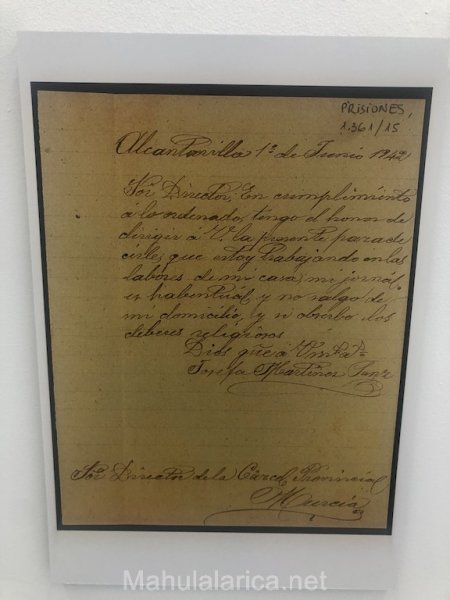 PRISIONES,
1.361/15
Alcantarilla 1º de Junio 1942
Sor Director, En cumplimiento
á lo ordenado, tengo el honor de
dirigir á V. la presente para de
cirle, que estoy trabajando en las
labores de mi casa, mi jornal
es habentual, y no salgo de
mi domicilio, y si obserbo los
deberes religiosos
Dios güe á V m
Josefa Martinez Sanz
Sor Director de la Cárcel Provincial
Murcia
Mahulalarica.net